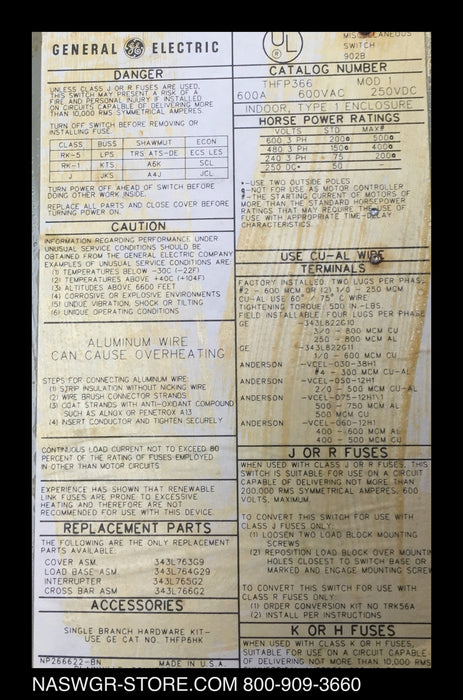 GENERAL GE ELECTRIC
DANGER
UNLESS CLASS J OR R FUSES ARE USED,
THIS SWITCH MAY PRESENT A RISK OF A
FIRE AND PERSONAL INJURY IF INSTALLED
ON CIRCUITS CAPABLE OF DELIVERING MORE
THAN 10,000 RMS SYMMETRICAL AMPERES.
TURN OFF SWITCH BEFORE REMOVING OR
INSTALLING FUSE.
CLASS BUSS SHAWMUT ECON
RK-5 LPS TRS ATS-DE ECS LES
RK-1 KTS A6K SCL
J JKS A4J JCL
TURN POWER OFF AHEAD OF SWITCH BEFORE
DOING OTHER WORK INSIDE.
REPLACE ALL PARTS AND CLOSE COVER BEFORE
TURNING POWER ON.
CAUTION
INFORMATION REGARDING PERFORMANCE UNDER
UNUSUAL SERVICE CONDITIONS SHOULD BE
OBTAINED FROM THE GENERAL ELECTRIC COMPANY
EXAMPLES OF UNUSUAL SERVICE CONDITIONS ARE
(1) TEMPERATURES BELOW -30C (-22F)
(2) TEMPERATURES ABOVE +40C (+104F)
(3) ALTITUDES ABOVE 6600 FEET
(4) CORROSIVE OR EXPLOSIVE ENVIRONMENTS
(5) UNDUE VIBRATION, SHOCK OR TILTING
(6) UNIQUE OPERATING CONDITIONS
ALUMINUM WIRE
CAN CAUSE OVERHEATING
STEPS FOR CONNECTING ALUMINUM WIRE:
(1) STRIP INSULATION WITHOUT NICKING WIRE
(2) WIRE BRUSH CONNECTOR STRANDS
(3) COAT STRANDS WITH ANTI-OXIDANT COMPOUND
SUCH AS ALNOX OR PENETROX A13
(4) INSERT CONDUCTOR AND TIGHTEN SECURELY
CONTINUOUS LOAD CURRENT NOT TO EXCEED 80
PERCENT OF THE RATING OF FUSES EMPLOYED
IN OTHER THAN MOTOR CIRCUITS
EXPERIENCE HAS SHOWN THAT RENEWABLE
LINK FUSES ARE PRONE TO EXCESSIVE
HEATING AND THEREFORE ARE NOT
RECOMMENDED FOR USE WITH THIS DEVICE.
REPLACEMENT PARTS
THE FOLLOWING ARE THE ONLY REPLACEMENT
PARTS AVAILABLE:
COVER ASM. 343L763G9
LOAD BASE ASM 343L764G29
INTERRUPTER 343L765G2
CROSS BAR ASM 343L766G2
ACCESSORIES
SINGLE BRANCH HARDWARE KIT-
USE GE CAT NO. THFP6HK
NP266622-BN MADE IN U.S.A.
UL
MISCELLANEOUS
SWITCH
902B
CATALOG NUMBER
THFP366 MOD 1
600A 600VAC 250VDC
INDOOR, TYPE 1 ENCLOSURE
HORSE POWER RATINGS
VOLTS STD MAX#
600 3 PH 200@ 500@
480 3 PH 150@ 400@
240 3 PH 75 200@
250 DC* 50 -
*-USE TWO OUTSIDE POLES
@-NOT FOR USE AS MOTOR CONTROLLER
#-THE STARTING CURRENT OF MOTORS OF
MORE THAN THE STANDARD HORSEPOWER
RATINGS THAT MAY REQUIRE THE USE OF
FUSE WITH APPROPRIATE TIME-DELAY
CHARACTERISTICS.
USE CU-AL WIRE
TERMINALS
FACTORY INSTALLED: TWO LUGS PER PHASE
#2 - 600 MCM OR (2) 1/0 - 250 MCM
CU-AL USE 60°/75°C WIRE
TIGHTENING TORQUE: 500 IN-LBS
FIELD INSTALLABLE: FOUR LUGS PER PHASE
GE -343L822G10
3/0 - 800 MCM CU
250 - 800 MCM AL
GE -343L822G11
1/0 - 600 MCM CU
ANDERSON -VCEL-030-38H1
#4 - 300 MCM CU-AL
ANDERSON -VCEL-050-12H1
2/0 - 500 MCM CU-AL
ANDERSON -VCEL-075-12H1
500 - 750 MCM AL
500 MCM CU
ANDERSON -VCEL-060-12H1
400 - 600 MCM AL
400 - 500 MCM CU
J OR R FUSES
WHEN USED WITH CLASS J OR R FUSES, THIS
SWITCH IS SUITABLE FOR USE ON A CIRCUIT
CAPABLE OF DELIVERING NOT MORE THAN
200,000 RMS SYMMETRICAL AMPERES, 600
VOLTS, MAXIMUM
TO CONVERT THIS SWITCH FOR USE WITH
CLASS J FUSES ONLY:
(1) LOOSEN TWO LOAD BLOCK MOUNTING
SCREWS
(2) REPOSITION LOAD BLOCK OVER MOUNTIN
HOLES CLOSEST TO SWITCH BASE OR
MARKED AND ENGAGE MOUNTING SCREW
TO CONVERT THIS SWITCH FOR USE WITH
CLASS R FUSES ONLY:
(1) ORDER CONVERSION KIT NO TRK56A
(2) INSTALL PER INSTRUCTIONS
K OR H FUSES
WHEN USED WITH CLASS K OR H FUSES,
SUITABLE FOR USE ON A CIRCUIT CAPABLE
OF DELIVERING NOT MORE THAN 10,000 RMS
NASWGR-STORE.COM 800-909-3660